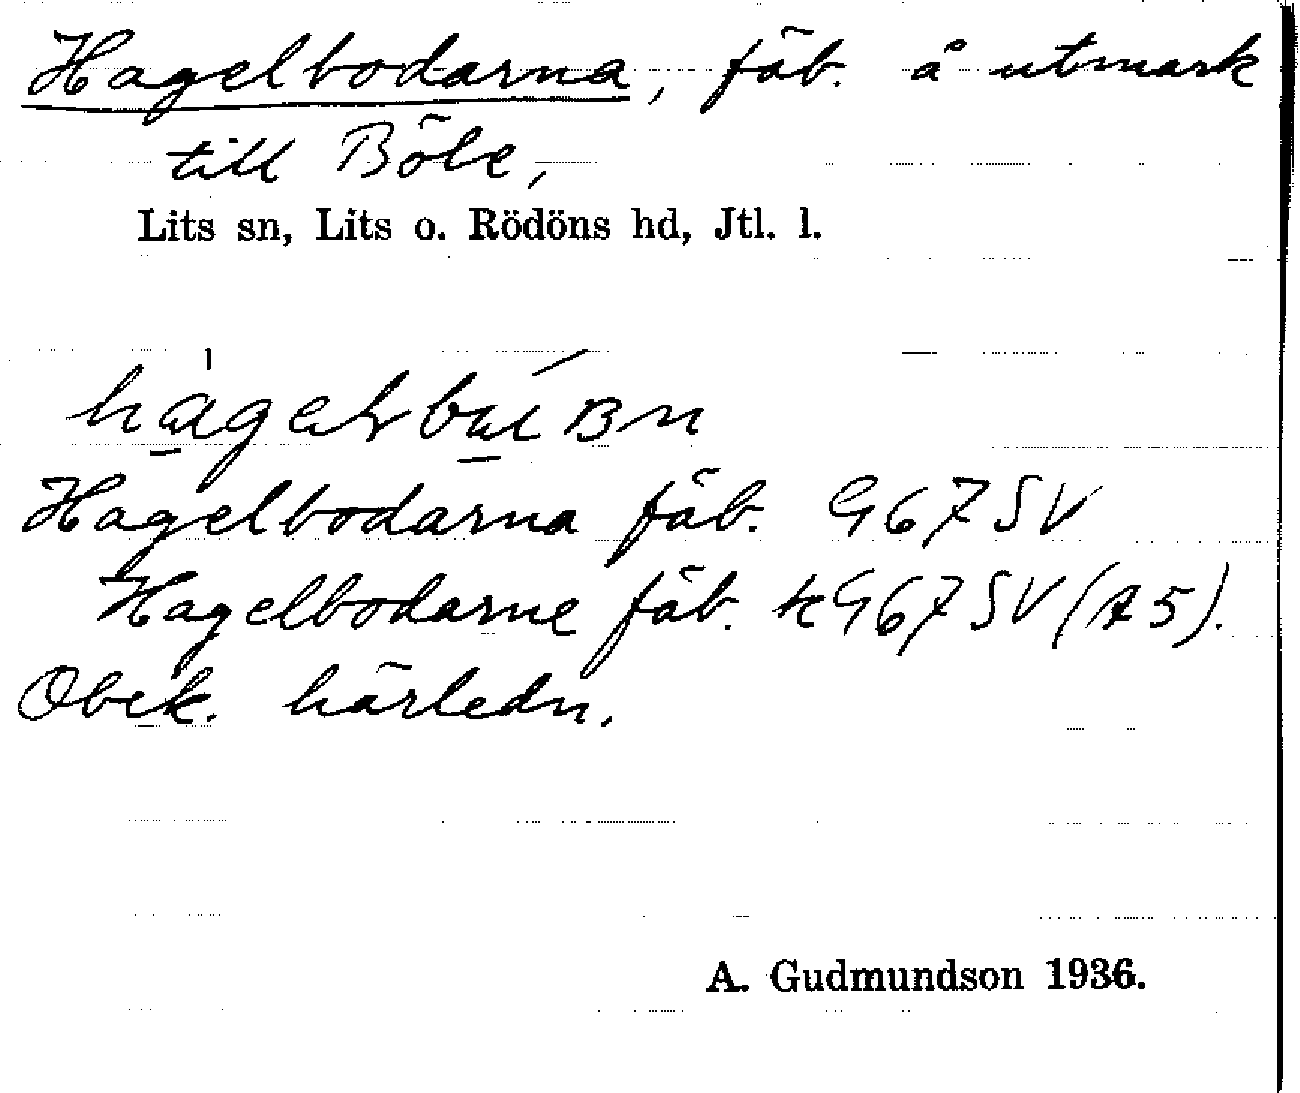 Hagelbodarna, fäb. å utmark
till Böle,
Lits sn, Lits o. Rödöns hd, Jtl. l.
Hagelbodarna fäb. G67SV
Hagelbodarne fäb. kG67SV(A5).
Obek. härledn.
A. Gudmundson 1936.